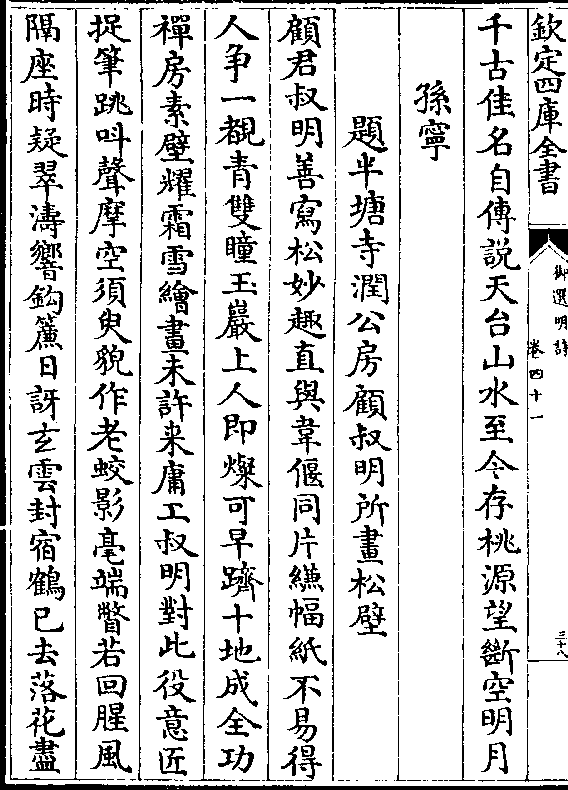 欽定四庫全書
御選明詩
卷四十一
三十八
千古佳名自傳説天台山水至今存桃源望斷空明月
孫寧
題半塘寺潤公房顧叔明所畫松壁
顧君叔明善寫松妙趣直與韋偃同片縑幅紙不易得
人爭一覩青雙瞳玉巖上人即燦可早躋十地成全功
禪房素壁耀霜雪繪畫未許来庸工叔明對此役意匠
捉筆跳呌聲摩空須臾貌作老蛟影毫端瞥若回腥風
隔座時疑翠濤響鈎簾日訝玄雲封宿鶴已去落花盡